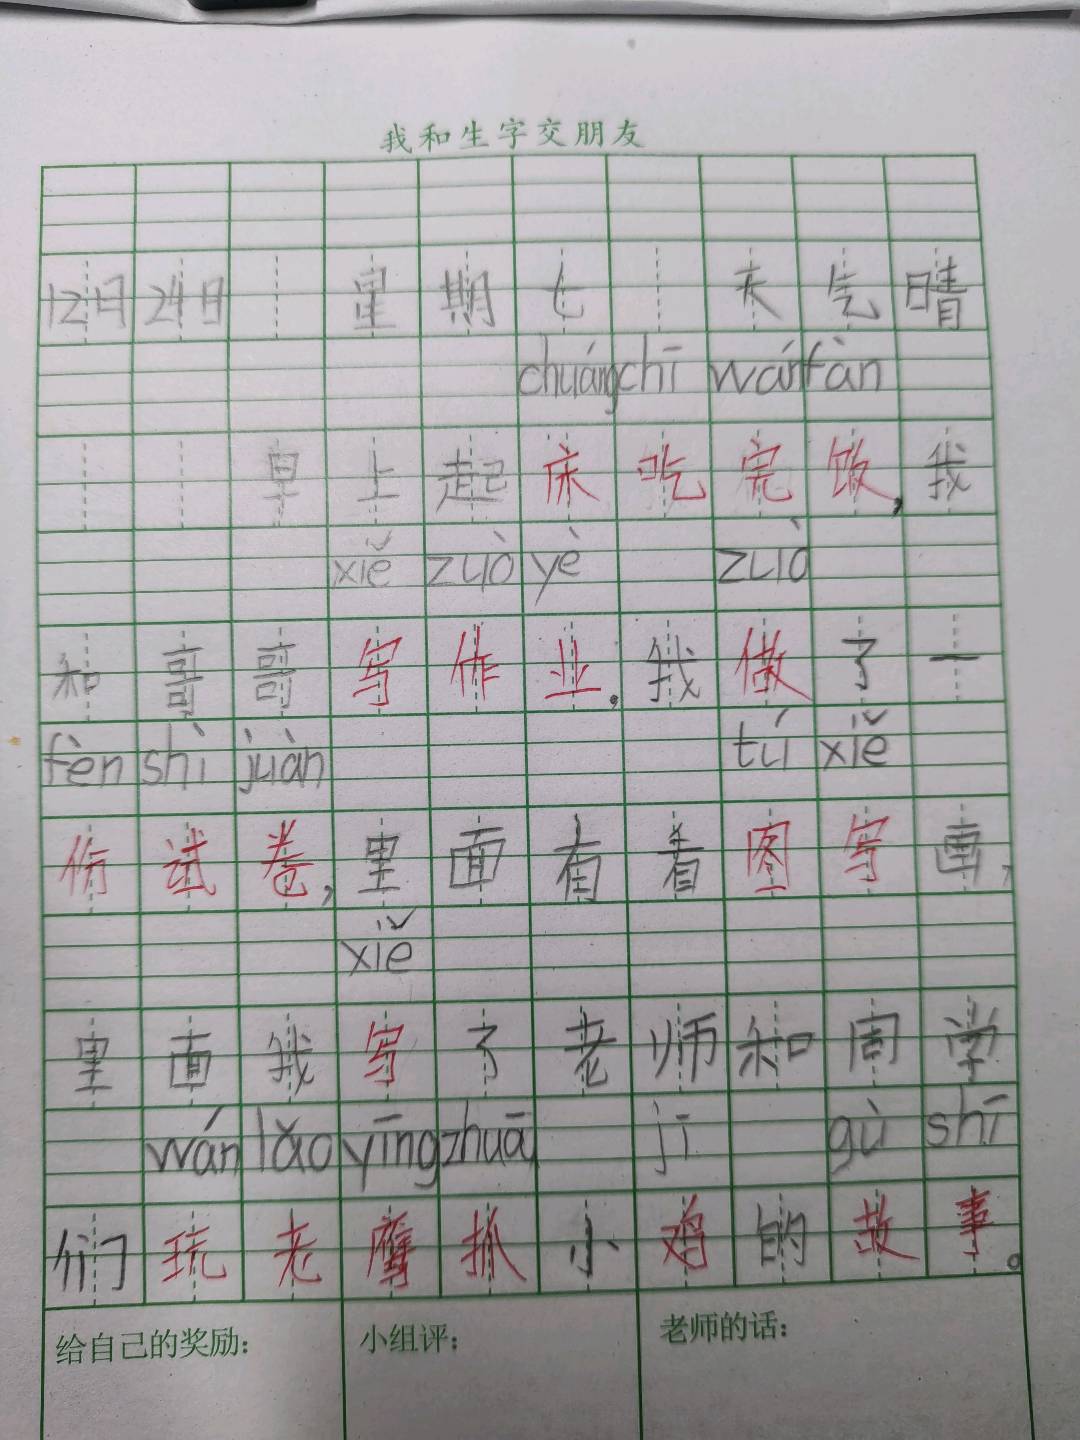 我和生字交朋友
12日24日 星期七 天气晴
chuáng chī wán fàn
早上起床吃完饭,我
xiě zuò yè zuò
和哥哥写作业。我做了一
fèn shì juàn tú xiě
份试卷,里面有看图写画,
xiě
里面我写了老师和同学
wán lǎo yīng zhuā jī gù shī
们玩老鹰抓小鸡的故事。
给自己的奖励: 小组评: 老师的话: